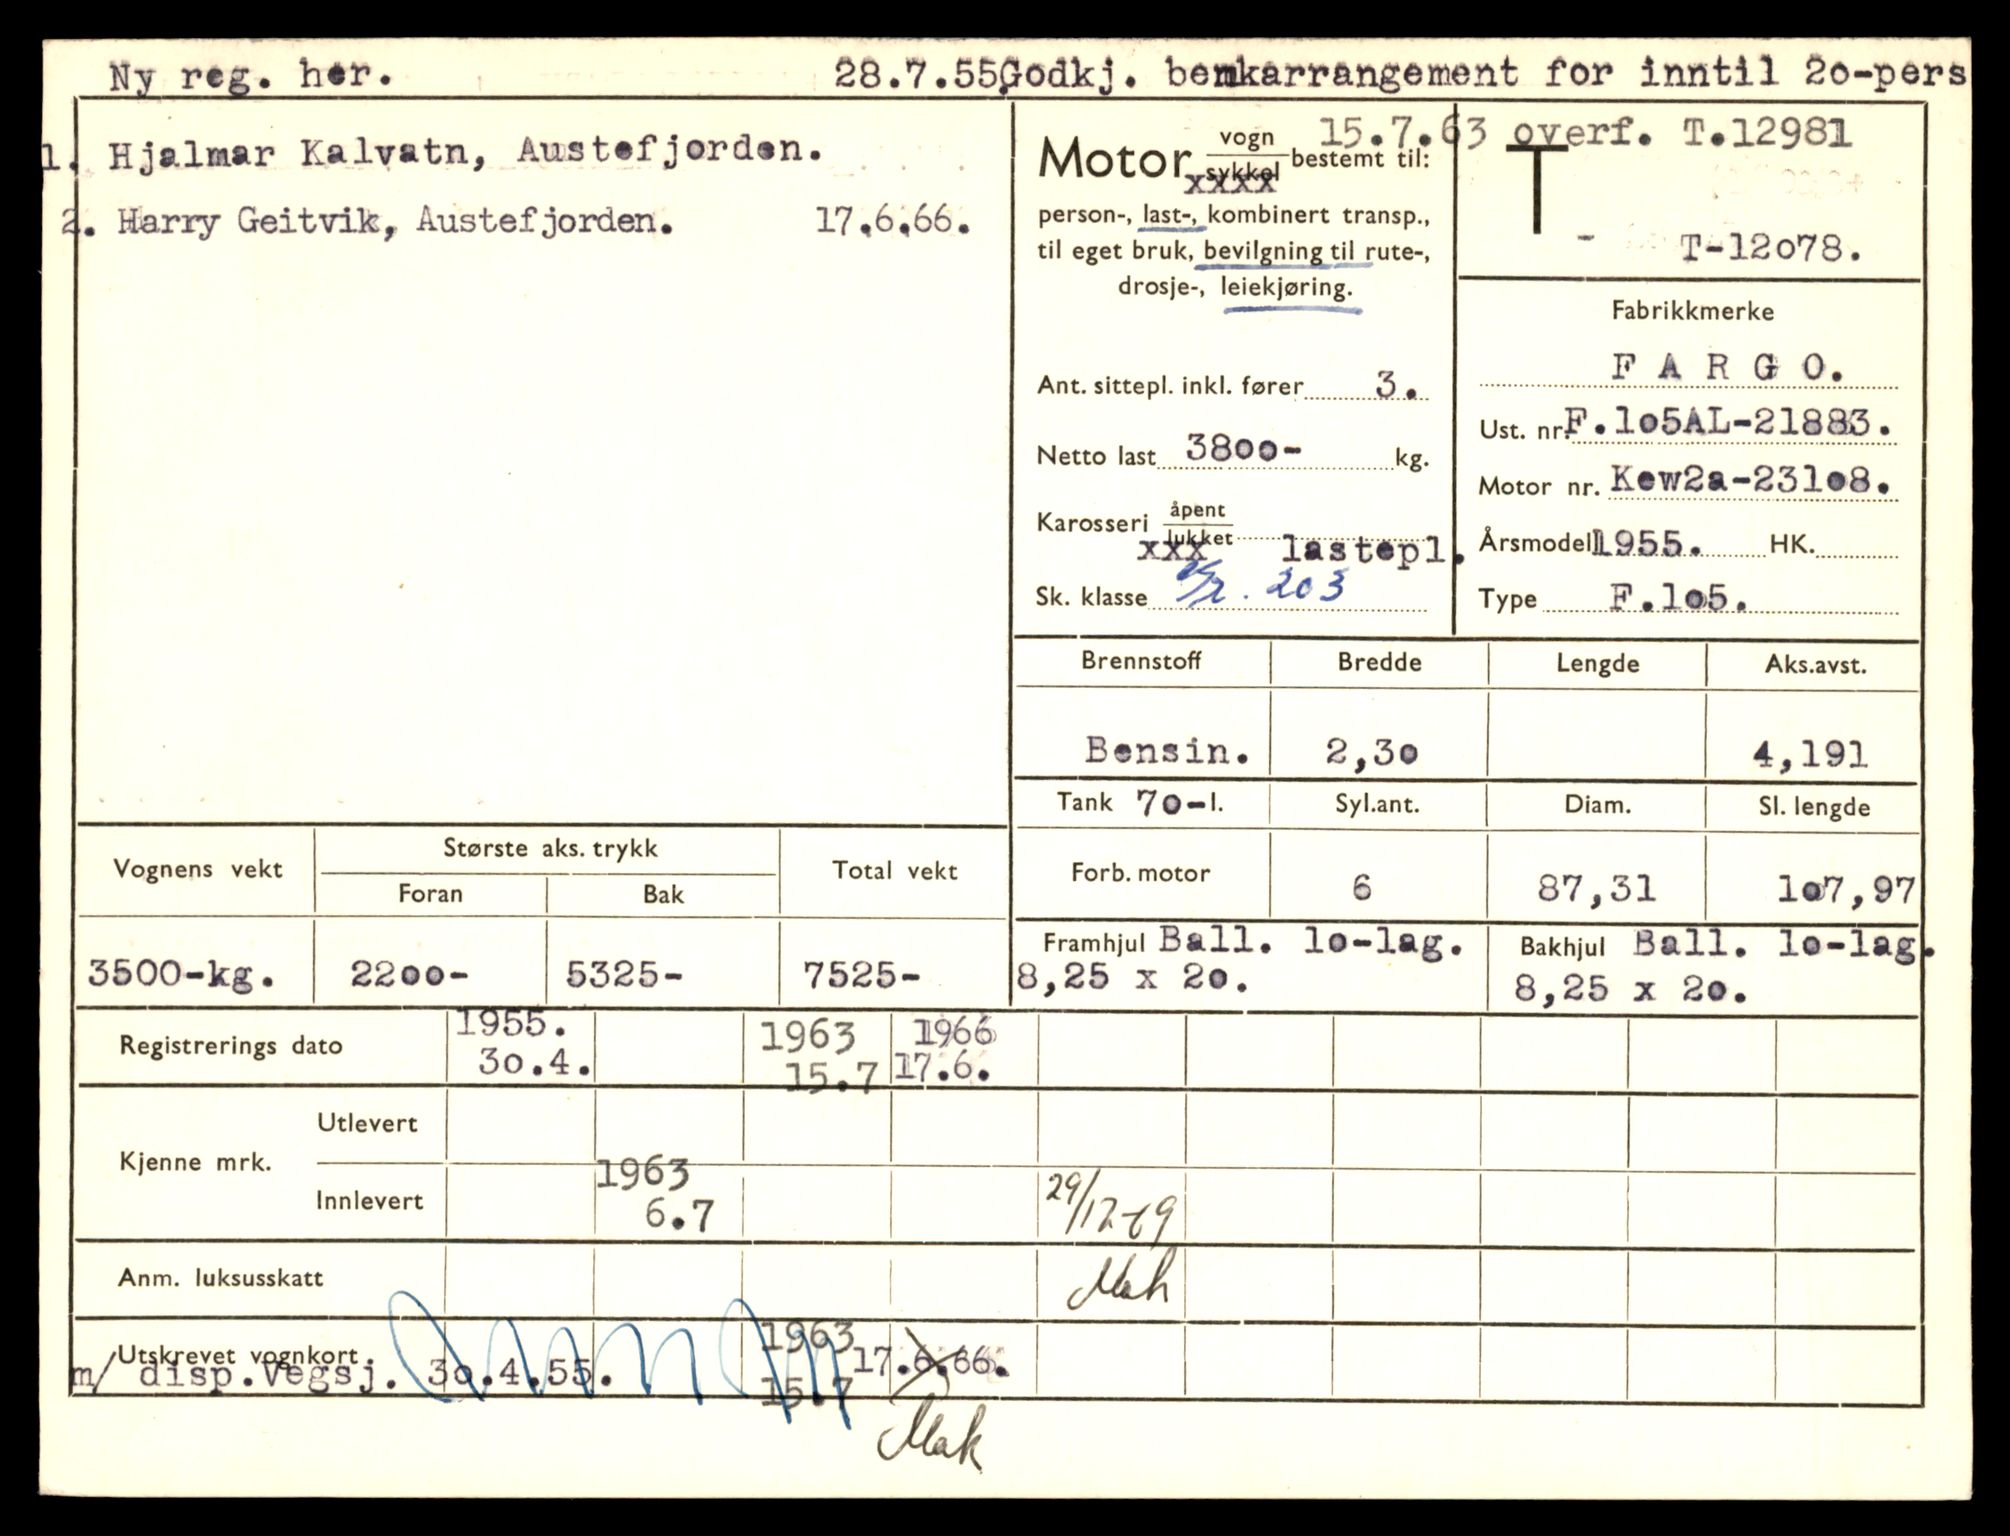 Ny reg. her. 28.7.55. Godkj. benkarrangement for inntil 2o-pers
1. Hjalmar Kalvatn, Austefjorden.
2. Harry Geitvik, Austefjorden. 17.6.66.
15.7.63 overf. T.12981
Motor vogn sykkel bestemt til:
xxxx
person-, last-, kombinert transp.,
til eget bruk, bevilgning til rute-,
drosje-, leiekjøring.
T
- T-12o78.
Ant. sittepl. inkl. fører 3.
Netto last 38oo- kg.
Karosseri åpent lukket
xxx lastepl.
Sk. klasse 203
Fabrikkmerke
F A R G O.
Ust. nr. F.1o5AL-21883.
Motor nr. Kew2a-231o8.
Årsmodell 1955. HK.
Type F.1o5.
Brennstoff Bredde Lengde Aks.avst.
Bensin. 2,3o 4,191
Tank 7o-l. Syl.ant. Diam. Sl. lengde
Forb. motor 6 87,31 1o7,97
Framhjul Ball. 1o-lag.
8,25 x 2o.
Bakhjul Ball. 1o-lag.
8,25 x 2o.
Vognens vekt Største aks. trykk Total vekt
Foran Bak
3500-kg. 22oo- 5325- 7525-
Registrerings dato 1955. 1963 1966
3o.4. 15.7 17.6.
Kjenne mrk. Utlevert
Innlevert 1963
6.7
29/12-69
Mah
Anm. luksusskatt
Utskrevet vognkort 1963
m/ disp.Vegsj. 3o.4.55. 15.7 17.6.66.
Mak